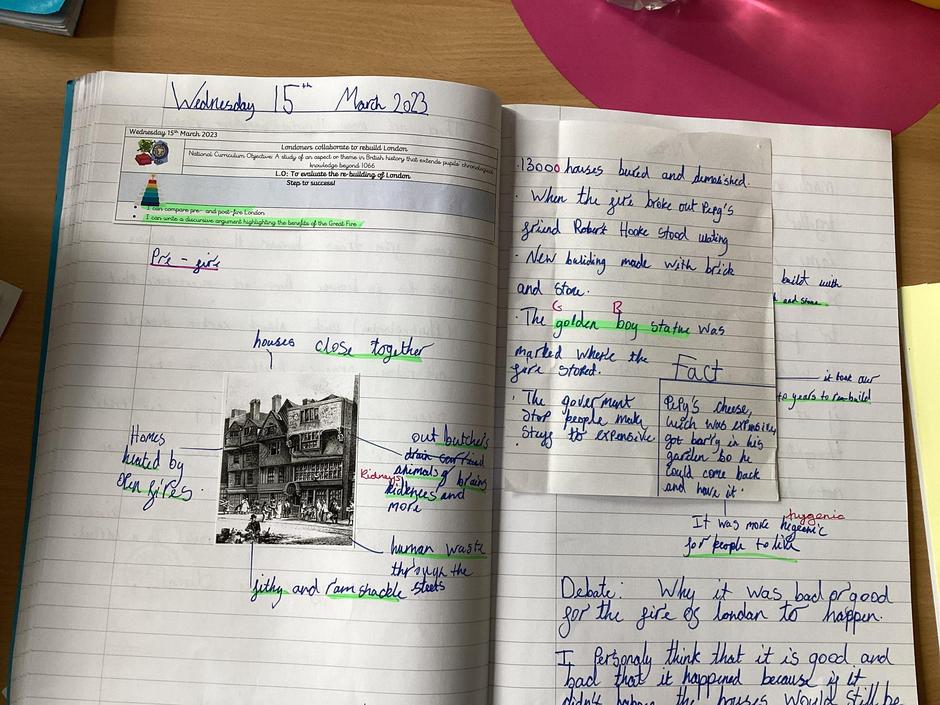 Wednesday 15th March 2023
Wednesday 15th March 2023
Londoners collaborate to rebuild London
National Curriculum Objective: A study of an aspect or theme in British history that extends pupils' chronological
knowledge beyond 1066
L.O: To evaluate the re-building of London
Step to success!
I can compare pre- and post-fire London
I can write a discursive argument highlighting the benefits of the Great Fire
Pre - fire
houses close together
Homes
heated by
open fires.
out butchers
animals of brains
Kidneys
kidences and
more
human waste
through the
steets
filthy and ramshackle
13000 houses bured and demolished.
When the fire broke out Pepy's
friend Robert Hooke stood wating
New buliding made with brick
and stone.
G B
The golden boy statue was
marked where the
fire stored.
The goverment
stop people make
stuff to expensive
Fact
Pepy's cheese,
wich was expensive,
got barry in his
garden so he
could come back
and have it.
built with
and stone
it took our
to years to re-build
It was more hegeenic
hygenic
for people to live
Debate: Why it was bad or good
for the fire of london to happen.
I Personaly think that it is good and
bad that it happened because if it
didn't happen the houses would still be